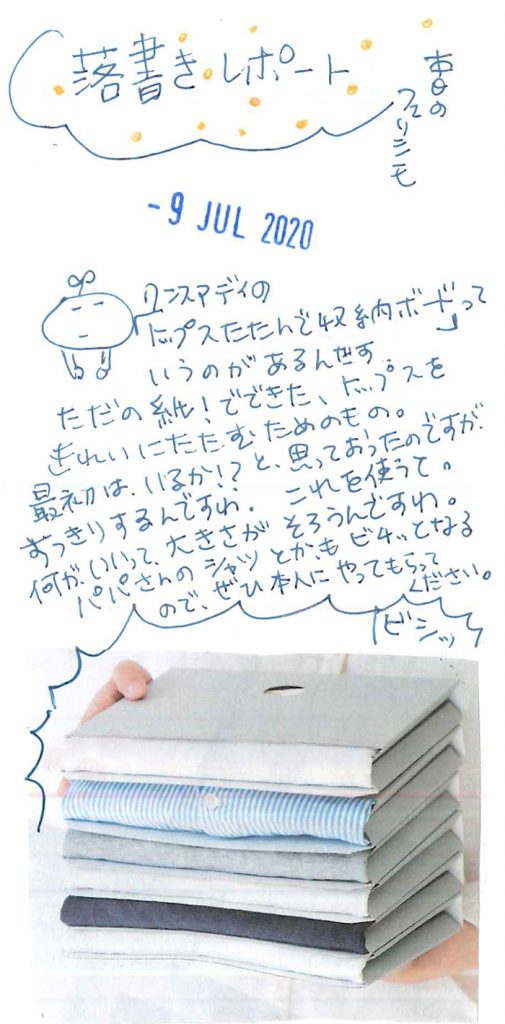 落書きレポート
本日の
フェリシモ
-9 JUL 2020
ワンスアデイの
「トップスたたんで収納ボード」って
いうのがあるんです。
ただの紙!でできた、トップスを
きれいにたたむためのもの。
最初は、いるか!?と、思っておったのですが、
すっきりするんですわ。これを使うて。
何がいいって、大きさがそろうんですわ。
パパさんのシャツとかもビチッとなる
ので、ぜひ本人にやってもらって
ください。
ビシッ